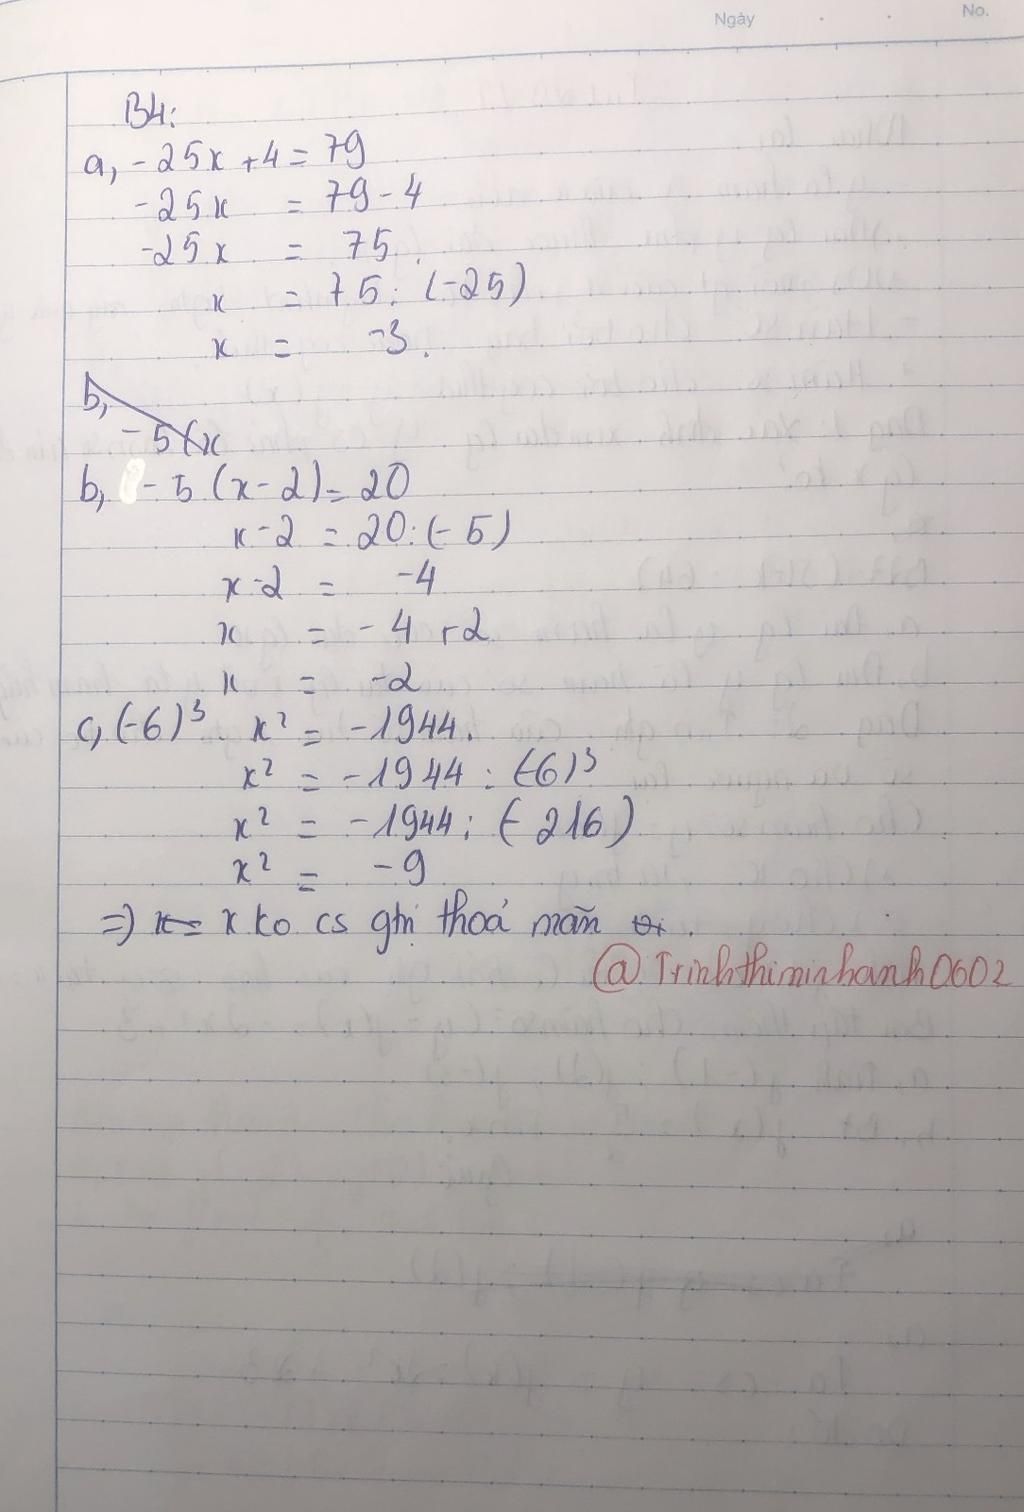 Ngày
No.
B4:
a, -25x + 4 = 79
-25x = 79 - 4
-25x = 75
x = 75 : (-25)
x = -3.
b,
-5(x
b, -5 (x - 2) = 20
x - 2 = 20 : (-5)
x - 2 = -4
x = -4 + 2
x = -2
c, (-6)³. x² = -1944.
x² = -1944 : (-6)³
x² = -1944 : (-216)
x² = -9
=> x = x ko cs gtri thoả mãn
@Trinhthiminhanh0602